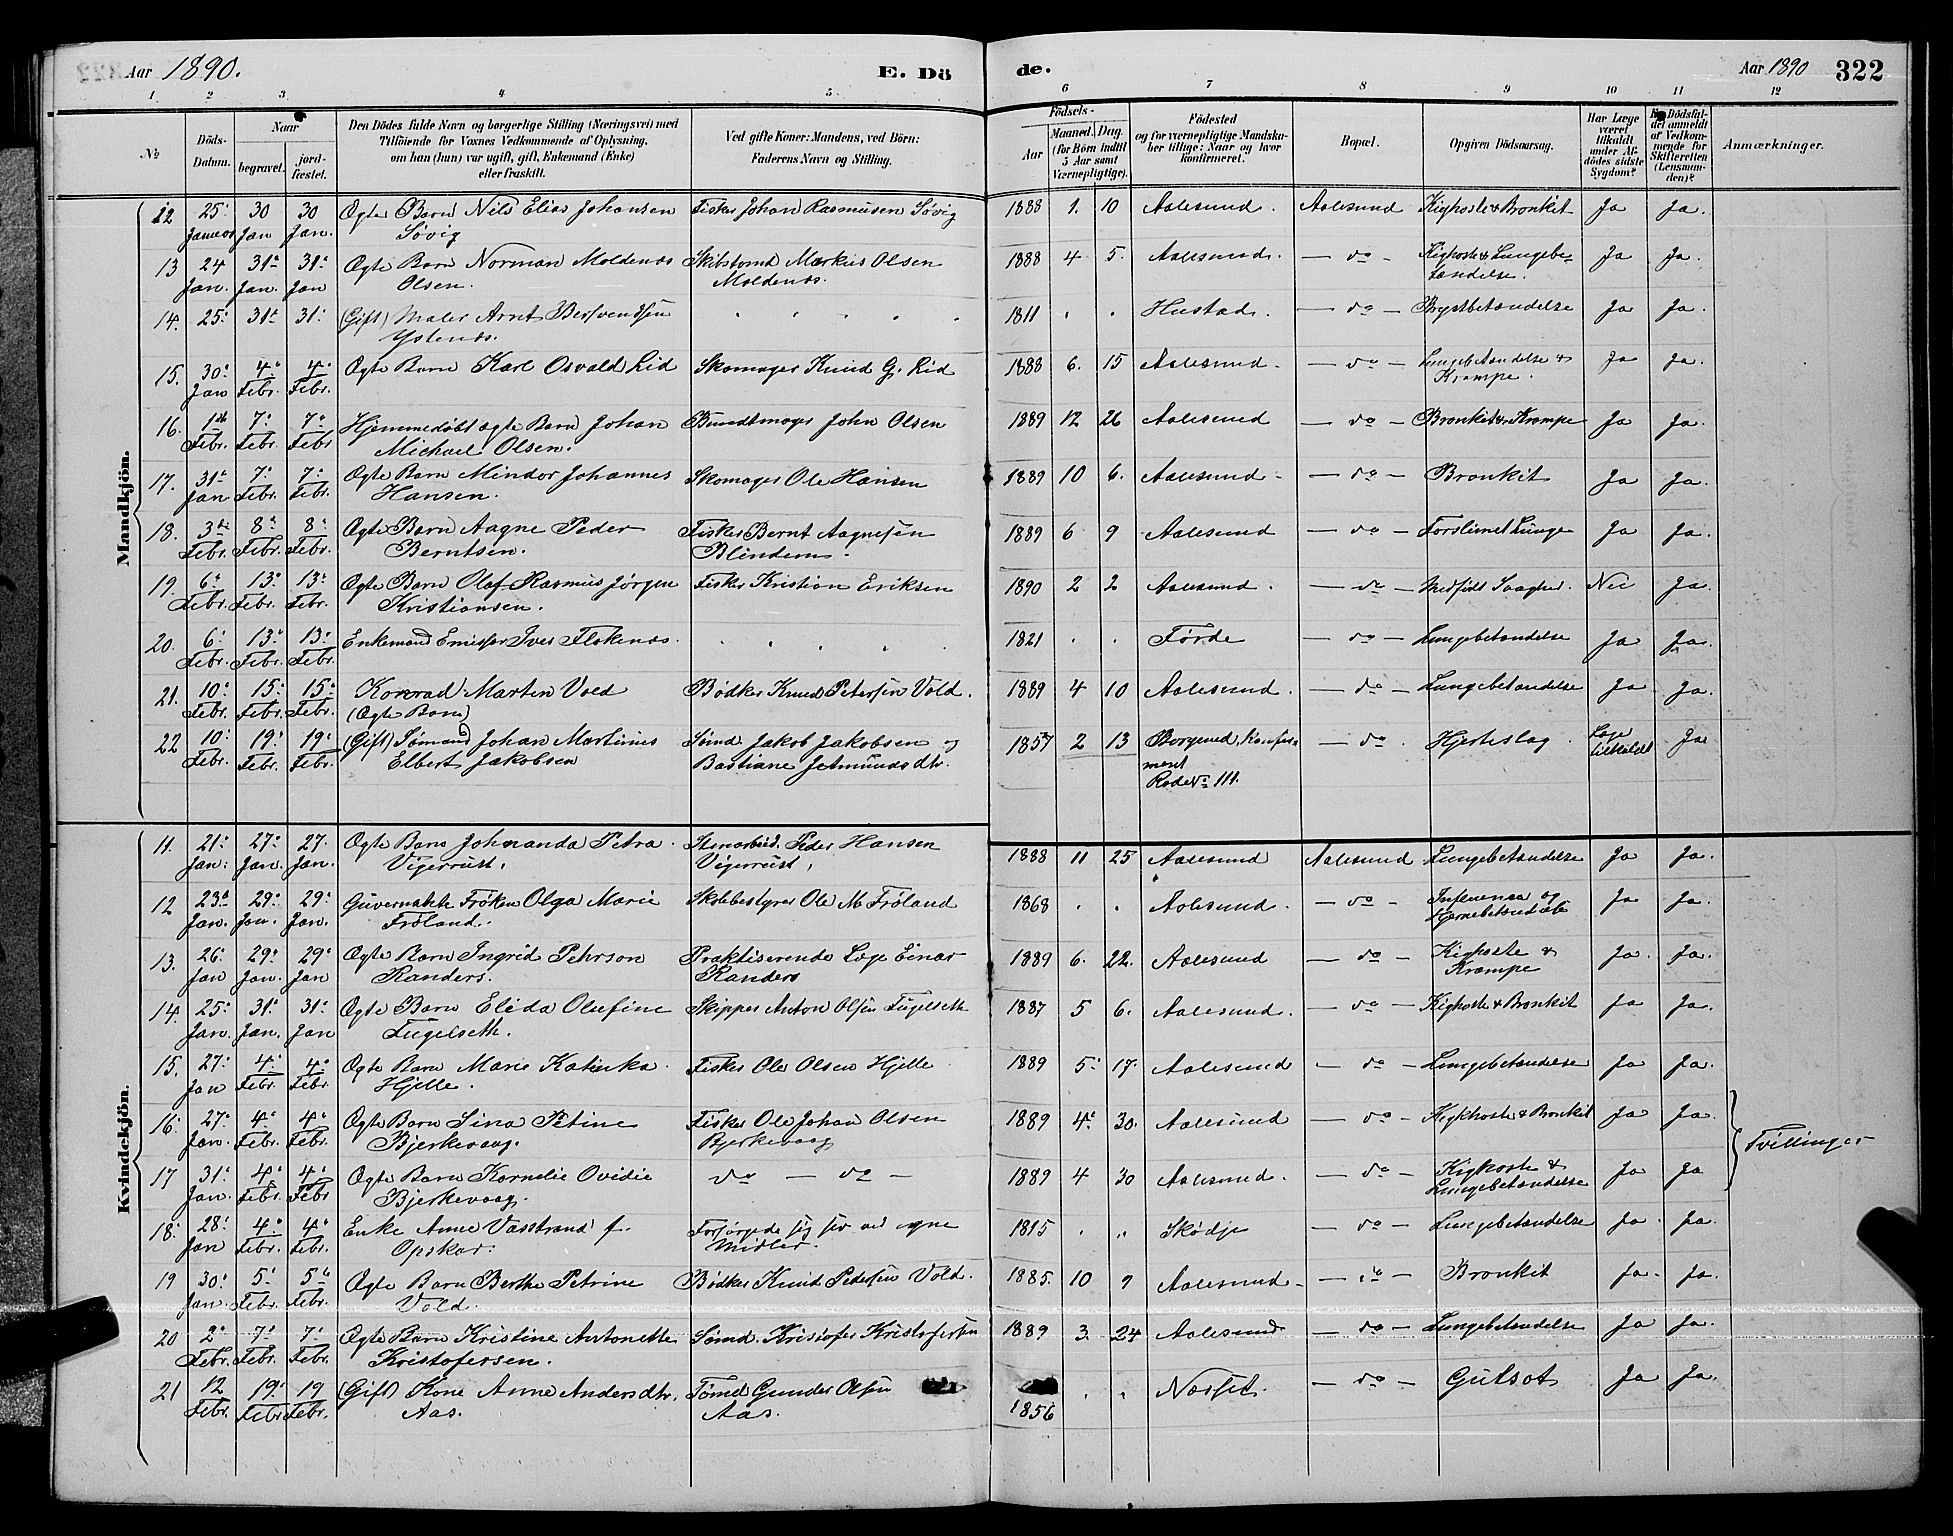 Aar 1890.
E. Dö
de.
Aar 1890
322
1 2 3 4 5 6 7 8 9 10 11 12
№
Döds-Datum.
Naar
begravet.
jordfæstet.
Den Dödes fulde Navn og borgerlige Stilling (Næringsvei) med
Tilföiende for Voxnes Vedkommende af Oplysning,
om han (hun) var ugift, gift, Enkemand (Enke)
eller fraskilt.
Ved gifte Koner: Mandens, ved Börn:
Faderens Navn og Stilling.
Födsels-
Aar
Maaned. Dag.
(for Börn indtil
5 Aar samt
Værnepligtige).
Födested
og for værnepligtige Mandska-
ber tillige: Naar og hvor
konfirmeret.
Bopæl.
Opgiven Dödsaarsag.
Har Læge
været
tilkaldt
under Af-
dödes sidste
Sygdom?
Er Dödsfal-
det anmeldt
af Vedkom-
mende for
Skifteretten
(Lensman-
den)?
Anmærkninger.
Mandkjön.
12 25 30 30 Ægte Barn Nils Elias Johansen Fisker Johan Rasmusen Søvig 1888 1. 10 Aalesund. Aalesund Kighoste & Bronkit Ja Ja.
Januar Jan Jan. Søvig
13 24 31 31 Ægte Barn Norman Moldenæs Skibstømd Markus Olsen 1888 4 5. Aalesund. — do - Kighoste & Lungebe- Ja Ja.
Jan. Jan. Jan Olsen. Moldenæs. tændelse.
14. 25 31 31 (Gift) Maler Arnt Bersvendsen " " " " 1811 " " Hustad. — do - Brystbetændelse Ja Ja.
Ystenæs.
15. 30 4 4 Ægte Barn Karl Osvald Lid Skomager Knud G. Lid 1888 6. 15 Aalesund. — do - Lungebetændelse & Ja Ja.
Jan Febr. Febr. Krampe.
16. 1ste 7 7 Hjemmedøbt ægte Barn Johan Bundtmager John Olsen 1889 12 26 Aalesund — do - Bronkit & Krampe Ja Ja.
Febr. Febr. Febr Michael Olsen.
17. 31 7 7 Ægte Barn Mindor Johannes Skomager Ole Hansen 1889 10 6. Aalesund - — do - Bronkit Ja Ja.
Jan Febr. Febr. Hansen.
18. 3 8 8 Ægte Barn Aagne Peder Fisker Bernt Aagnesen 1889 6 9 Aalesund — do - Forslimet Lunge Ja Ja.
Febr. Febr. Febr. Berntsen. Blindem.
19. 6 13 13 Ægte Barn Olaf Rasmus Jørgen Fisker Kristian Eriksen 1890 2 2 Aalesund. — do - Medfødt Svaghed. Nei Ja.
Febr. Febr. Febr. Kristiansen.
20. 6 13 13 Enkemand Emissær Iver Flokenæs. " " " " 1821 " " Førde — do - Lungebetændelse Ja Ja.
Febr. Febr. Febr.
21. 10 15 15 Konrad Martin Vold Bødker Knud Petersen Vold. 1889 4 10 Aalesund. — do - Lungebetændelse Ja Ja.
Febr. Febr. Febr. (Ægte Barn)
22 10 19 19 (Gift) Sømand Johan Martinus Sømd. Jakob Jakobsen og 1857 2 13 Borgund, — do - Hjerteslag Læge Ja
Febr. Febr. Febr. Elbert Jakobsen Bastiane Jetmundsdtr. tilkaldt
Rode № 111.
Kvindekjön.
11. 21 27 27. Ægte Barn Johnanda Petra Stenarbeid. Peder Hansen 1888 11 25 Aalesund Aalesund Lungebetændelse Ja Ja.
Jan. Jan. Jan. Vigerust. Vigerust.
12 23 29 29 Guvernante Frøken Olga Marie Skolebestyrer Ole M. Frøland 1868 " " Aalesund. — do - Influensa og Ja Ja.
Jan. Jan. Jan. Frøland. Hjernebetændelse
13. 26 29 29 Ægte Barn Ingrid Pehrson Praktiserende Læge Einar 1889 6. 22. Aalesund — do - Kighoste & Ja. Ja.
Jan Jan. Jan Randers. Randers Krampe
14. 25 31 31 Ægte Barn Elida Olufine Skipper Anton Olsen Fugelseth 1887 5 6. Aalesund. — do - Kighoste & Bronkit Ja Ja.
Jan. Jan. Jan Fugelseth.
15. 27 4 4 Ægte Barn Marie Katinka Fisker Ole Olsen Hjelle 1889 5 17. Aalesund — do - Lungebetændelse Ja Ja.
Jan Febr. Febr. Hjelle.
16. 27 4 4 Ægte Barn Sina Petine Fisker Ole Johan Olsen 1889 4 30. Aalesund — do - Kighoste & Bronkit Ja Ja.
Jan. Febr. Febr Bjerkevaag. Bjerkevaag
Tvillinger
17 31 4 4 Ægte Barn Kornelie Ovidie do — do — 1889 4 30 Aalesund. — do - Kighoste & Ja Ja
Jan. Febr. Febr Bjerkevaag. Lungebetændelse
18. 28 4 4 Enke Anne Vasstrand f. Forsørgede sig selv ved egne 1815 " " Skødje — do - Lungebetændelse Ja. Ja.
Jan Febr. Febr. Opskar. Midler.
19 30 5 5 Ægte Barn Berthe Petrine Bødker Knud Pedersen Vold. 1885. 10 9 Aalesund - — do - Bronkit Ja. Ja.
Jan. Febr. Febr. Vold.
20 2 7 7 Ægte Barn Kristine Antonette Sømd. Kristofer Kristofersen 1889 3. 24 Aalesund — do - Lungebetændelse Ja Ja.
Febr. Febr. Febr. Kristofersen.
21 12 19 19 (Gift) Kone Anne Andersdtr. Tømd Gunder Olsen " " Nesset. — do - Gulsot Ja Ja
Febr. Febr Febr. Aas. Aas. 1856